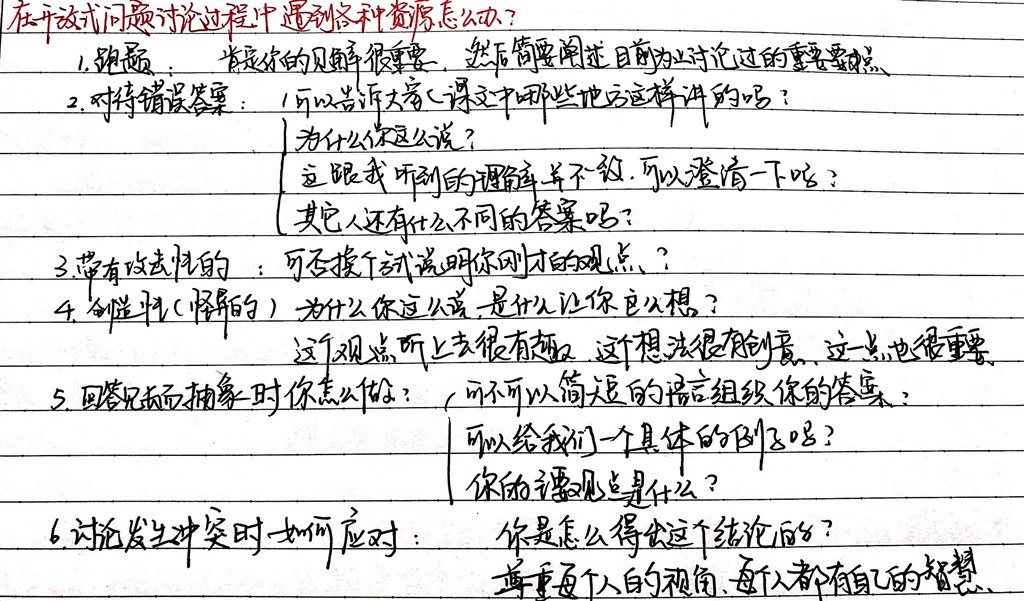 在开放式问题讨论过程中遇到各种资源怎么办?
1.跑题: 肯定你的见解很重要,然后简要阐述目前为止讨论过的重要要点
2.对待错误答案: 可以告诉大家课文中哪些地方这样讲的吗?
为什么你这么说?
这跟我听到的理解并不一致,可以澄清一下吗?
其它人还有什么不同的答案吗?
3.带有攻击性的: 可否换个方式说明你刚才的观点、?
4.创造性(怪异的) 为什么你这么说,是什么让你这么想?
这个观点听上去很有趣,这个想法很有创意、这一点也很重要
5.回答冗长而抽象时你怎么做? 可不可以简短的语言组织你的答案?
可以给我们一个具体的例子吗?
你的主要观点是什么?
6.讨论发生冲突时如何应对: 你是怎么得出这个结论的?
尊重每个人的视角、每个人都有自己的智慧